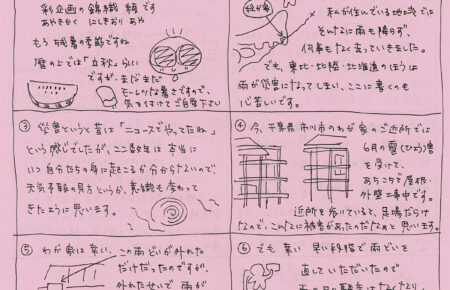 彩企画の錦織 綾です
あやきかく にしきおり あや
もう 残暑の季節ですね
暦の上では「立秋」らしい
ですが、まだまだ
モーレツな暑さですので、
気をつけて ご自愛下さい
私が住んでいる地域では
そんなに雨も降らず、
何事もなく去っていきました。
でも、東北・北陸・北海道のほうは
雨が災害になってしまい、ここに書くのも
心苦しいです。
③ 災害というと昔は「ニュースでやってたね」
という感じでしたが、ここ数年は本当に
いつ自分たちの身に起こるか分からないので、
天気予報の見方というか、意識も変わって
きたように思います。
④ 今、千葉県市川市のわが家のご近所では
6月の雹(ひょう)害
を受けて、
あちこちで屋根・
外壁工事中です。
近所を歩いていると、足場だらけ
なので、こんなに被害があったのだなぁと思います。
⑤ わが家は幸い、この雨どいが外れた
だけだったのですが、
外れたせいで 雨が
⑥ でも 幸い 早い段階で 雨どいを
直していただいたので